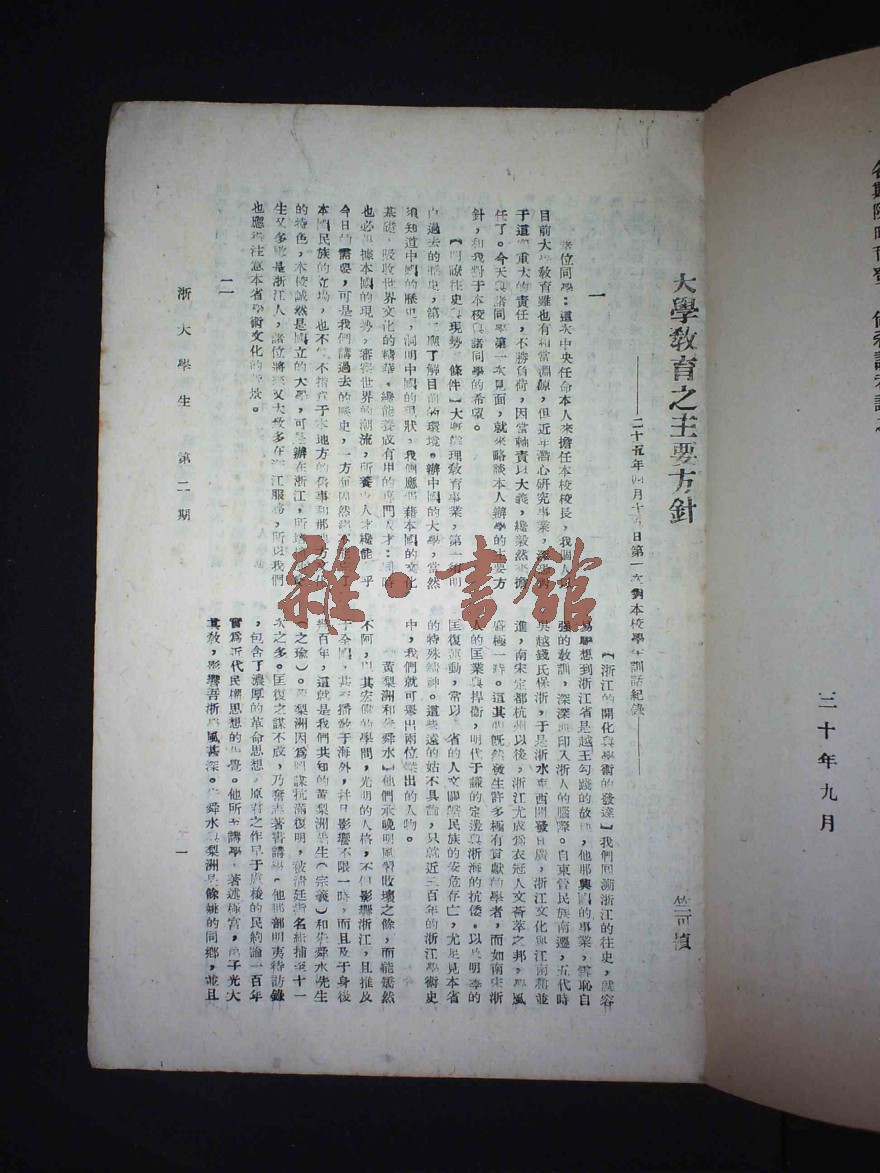 三十年九月
大學教育之主要方針
——二十五年四月二十五日第一次對本校學生訓話紀錄——
竺可楨
一
諸位同學：這次中央任命本人來擔任本校校長，我個人以
目前大學教育雖也有相當淵源，但近年潛心研究事業，深恐對
于這重大的責任，不勝負荷，因當軸責以大義，纔毅然來擔
任了。今天與諸同學第一次見面，就來略談本人辦學的主要方
針，和我對于本校與諸同學的希望。
【明瞭往史與現勢 條件】大凡辦理教育事業，第一須明
白過去的歷史，第二應了解目前的環境。辦中國的大學，當然
須知道中國的歷史，洞明中國的現狀，我們應憑藉本國的文化
基礎，吸收世界文化的精華，纔能養成有用的專門人才：同時
也必根據本國的現勢，審察世界的潮流，所養成人才纔能 乎
今日的需要，可是我們講過去的歷史，一方面固然 了
本國民族的立場，也不 不措意于本地方的舊事和那地方文化
的特色，本校誠然是國立的大學，可是辦在浙江，所
生又多數是浙江人，諸位將來又大致多在浙江服務，所以我們
也應得注意本省學術文化的背景。
二
【浙江的開化與學術的發達】我們回溯浙江的往史，就容
易學想到浙江省是越王勾踐的故地，他那興國的事業，雪恥自
強的教訓，深深地印入浙人的腦際。自東晉民族南遷，五代時
吳越錢氏保浙，于是浙水東西開發日廣，浙江文化與江南相並
進，南宋定都杭州以後，浙江尤成爲衣冠人文薈萃之邦，學風
盛極一時。這其間既然產生許多極有貢獻的學者，而如南宋浙
人的匡業與捍衛，明代于謙的定邊與浙海的抗倭，以及明季的
匡復運動，常以 省的人文關係民族的安危存亡，尤足見本省
的特殊精神。這些遠的姑不具論，只就近三百年的浙江學術史
中，我們就可舉出兩位傑出的人物。
【黃梨洲和朱舜水】他們承晚明風習敗壞之餘，而能 然
不阿，以其宏偉的學問，光明的人格，不但影響浙江，且推及
于全國，甚至播教于海外，并且影響不限一時，而且及于身後
幾百年，這就是我們共知的黃梨洲先生（宗羲）和朱舜水先生
（之瑜）。黃梨洲因爲圖謀抗滿復明，被清廷指名緝捕至十一
次之多。匡復之謀不成，乃奮志著書講學，他那部明夷待訪錄
，包含了濃厚的革命思想，原君之作早于盧梭的民約論一百年
，實爲近代民權思想的先覺。他所至講學，著述極富，弟子光大
其教，影響吾浙學風甚深。朱舜水與梨洲是餘姚的同鄉，並且
浙大學生 第二期
一
雜·書館